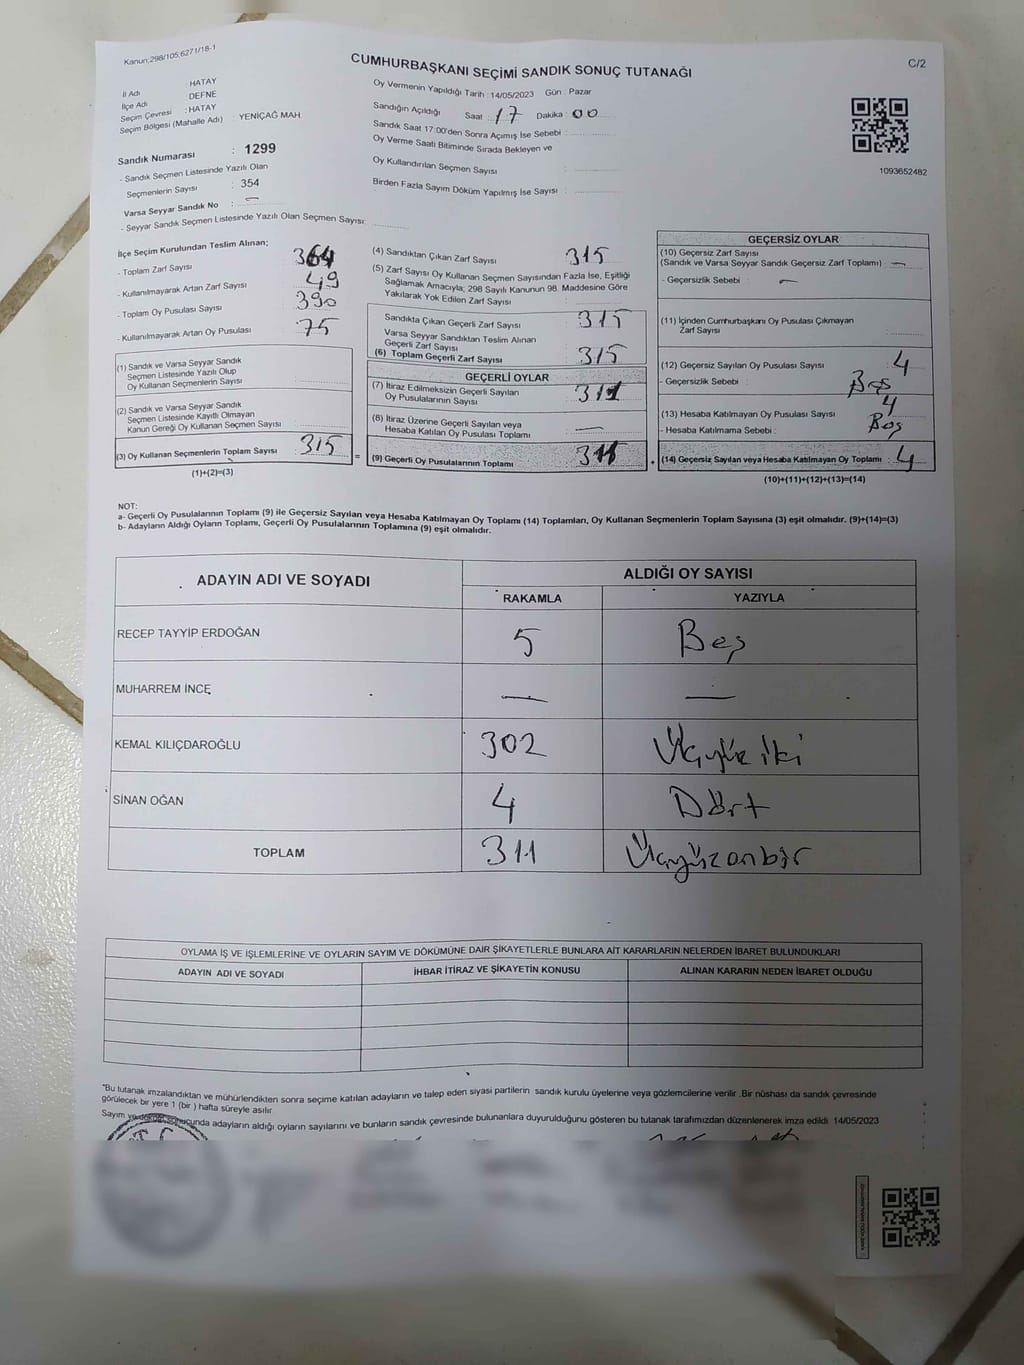 Kanun:298/105;6271/18-1
CUMHURBAŞKANI SEÇİMİ SANDIK SONUÇ TUTANAĞI
C/2
İl Adı : HATAY
İlçe Adı : DEFNE
Seçim Çevresi : HATAY
Seçim Bölgesi (Mahalle Adı) : YENİÇAĞ MAH.
Sandık Numarası : 1299
- Sandık Seçmen Listesinde Yazılı Olan
Seçmenlerin Sayısı : 354
Varsa Seyyar Sandık No : —
- Seyyar Sandık Seçmen Listesinde Yazılı Olan Seçmen Sayısı:
Oy Vermenin Yapıldığı Tarih : 14/05/2023 Gün : Pazar
Sandığın Açıldığı Saat : 17 Dakika : 00
Sandık Saat 17:00'den Sonra Açımış İse Sebebi :
Oy Verme Saati Bitiminde Sırada Bekleyen ve
Oy Kullandırılan Seçmen Sayısı :
Birden Fazla Sayım Döküm Yapılmış İse Sayısı :
1093652482
İlçe Seçim Kurulundan Teslim Alınan;
- Toplam Zarf Sayısı : 364
- Kullanılmayarak Artan Zarf Sayısı : 49
- Toplam Oy Pusulası Sayısı : 390
- Kullanılmayarak Artan Oy Pusulası : 75
(1) Sandık ve Varsa Seyyar Sandık
Seçmen Listesinde Yazılı Olup
Oy Kullanan Seçmenlerin Sayısı :
(2) Sandık ve Varsa Seyyar Sandık
Seçmen Listesinde Kayıtlı Olmayan
Kanun Gereği Oy Kullanan Seçmen Sayısı :
(3) Oy Kullanan Seçmenlerin Toplam Sayısı : 315
(1)+(2)=(3)
(4) Sandıktan Çıkan Zarf Sayısı : 315
(5) Zarf Sayısı Oy Kullanan Seçmen Sayısından Fazla İse, Eşitliği
Sağlamak Amacıyla; 298 Sayılı Kanunun 98. Maddesine Göre
Yakılarak Yok Edilen Zarf Sayısı :
Sandıkta Çıkan Geçerli Zarf Sayısı : 315
Varsa Seyyar Sandıktan Teslim Alınan
Geçerli Zarf Sayısı :
(6) Toplam Geçerli Zarf Sayısı : 315
GEÇERLİ OYLAR
(7) İtiraz Edilmeksizin Geçerli Sayılan
Oy Pusulalarının Sayısı : 311
(8) İtiraz Üzerine Geçerli Sayılan veya
Hesaba Katılan Oy Pusulası Toplamı : —
= (9) Geçerli Oy Pusulalarının Toplamı : 311 +
GEÇERSİZ OYLAR
(10) Geçersiz Zarf Sayısı
(Sandık ve Varsa Seyyar Sandık Geçersiz Zarf Toplamı) : —
- Geçersizlik Sebebi : —
(11) İçinden Cumhurbaşkanı Oy Pusulası Çıkmayan
Zarf Sayısı :
(12) Geçersiz Sayılan Oy Pusulası Sayısı : 4
- Geçersizlik Sebebi : Boş
(13) Hesaba Katılmayan Oy Pusulası Sayısı : 4
- Hesaba Katılmama Sebebi : Boş
(14) Geçersiz Sayılan veya Hesaba Katılmayan Oy Toplamı : 4
(10)+(11)+(12)+(13)=(14)
NOT:
a- Geçerli Oy Pusulalarının Toplamı (9) ile Geçersiz Sayılan veya Hesaba Katılmayan Oy Toplamı (14) Toplamları, Oy Kullanan Seçmenlerin Toplam Sayısına (3) eşit olmalıdır. (9)+(14)=(3)
b- Adayların Aldığı Oyların Toplamı, Geçerli Oy Pusulalarının Toplamına (9) eşit olmalıdır.
ADAYIN ADI VE SOYADI
ALDIĞI OY SAYISI
RAKAMLA YAZIYLA
RECEP TAYYİP ERDOĞAN 5 Beş
MUHARREM İNCE — —
KEMAL KILIÇDAROĞLU 302 Üçyüz iki
SİNAN OĞAN 4 Dört
TOPLAM 311 Üçyüzonbir
OYLAMA İŞ VE İŞLEMLERİNE VE OYLARIN SAYIM VE DÖKÜMÜNE DAİR ŞİKAYETLERLE BUNLARA AİT KARARLARIN NELERDEN İBARET BULUNDUKLARI
ADAYIN ADI VE SOYADI İHBAR İTİRAZ VE ŞİKAYETİN KONUSU ALINAN KARARIN NEDEN İBARET OLDUĞU
*Bu tutanak imzalandıktan ve mühürlendikten sonra seçime katılan adayların ve talep eden siyasi partilerin sandık kurulu üyelerine veya gözlemcilerine verilir .Bir nüshası da sandık çevresinde
görülecek bir yere 1 (bir ) hafta süreyle asılır.
Sayım ve döküm sonucunda adayların aldığı oyların sayılarını ve bunların sandık çevresinde bulunanlara duyurulduğunu gösteren bu tutanak tarafımızdan düzenlenerek imza edildi. 14/05/2023
T.C.